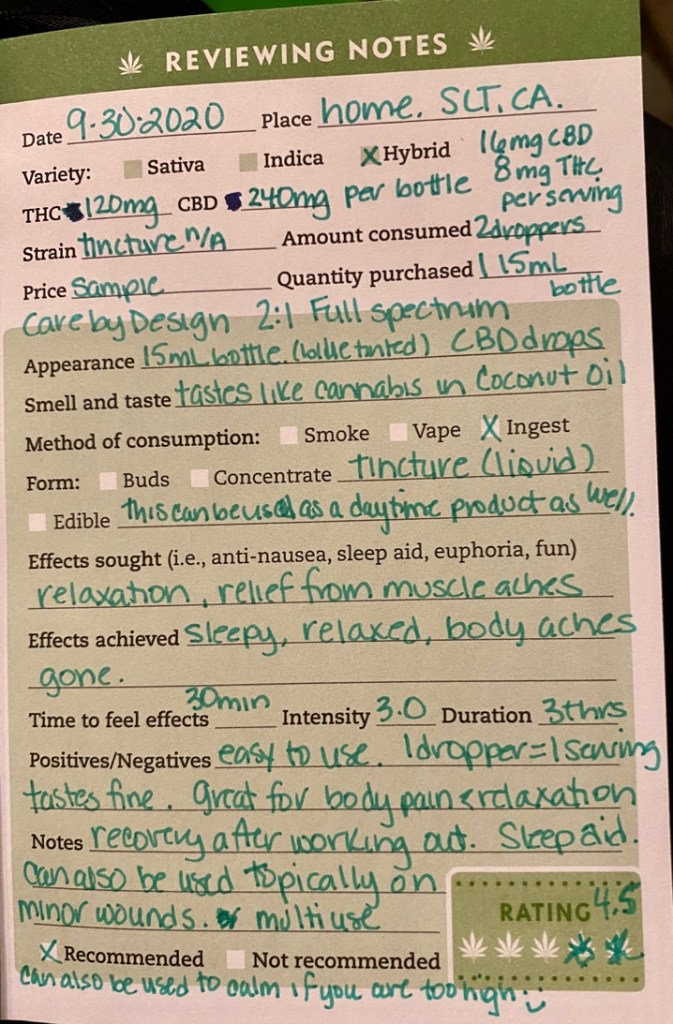 REVIEWING NOTES
Date 9.30.2020 Place home. SLT, CA.
Variety: Sativa Indica X Hybrid 16mg CBD
8mg THC
THC 120mg CBD 240mg per bottle per serving
Strain tincture n/A Amount consumed 2 droppers
Price Sample Quantity purchased 1 15mL
bottle
Care by Design 2:1 Full spectrum
Appearance 15mL bottle. (blue tinted) CBD drops
Smell and taste tastes like cannabis in Coconut Oil
Method of consumption: Smoke Vape X Ingest
Form: Buds Concentrate tincture (liquid)
Edible this can be used as a daytime product as well.
Effects sought (i.e., anti-nausea, sleep aid, euphoria, fun)
relaxation, relief from muscle aches
Effects achieved sleepy, relaxed, body aches
gone.
Time to feel effects 30min Intensity 3.0 Duration 3+hrs
Positives/Negatives easy to use. 1 dropper = 1 serving
tastes fine. Great for body pain & relaxation
Notes recovery after working out. Sleep aid.
Can also be used topically on
minor wounds. multi use
RATING 4.5
X Recommended Not recommended
can also be used to calm if you are too high :)